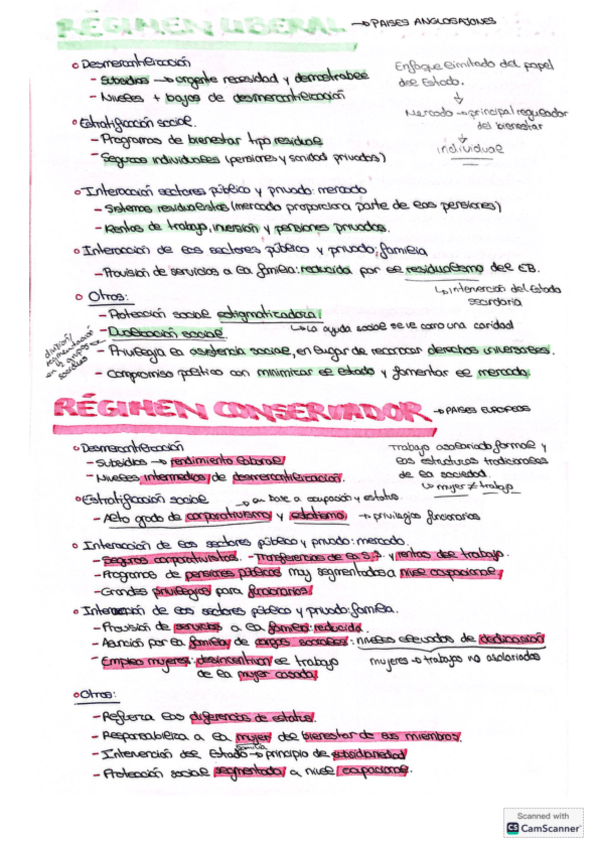 RÉGIMEN LIBERAL → PAISES ANGLOSAJONES
Desmercantilización
- Subsidios → urgente necesidad y demostrable
- Niveles + bajos de desmercantilización
Enfoque limitado del papel
del Estado.
↓
Mercado → principal regulador
del bienestar
↓
individual
Estratificación social.
- Programas de bienestar tipo residual
- Seguros individuales (pensiones y sanidad privados)
Interacción sectores público y privado: mercado
- Sistemas residualistas (mercado proporciona parte de las pensiones)
- Rentas de trabajo, inversión y pensiones privadas.
Interacción de los sectores público y privado: familia
- Provisión de servicios a la familia: reducida por el residualismo del EB.
↳ intervención del Estado
secundaria
Otros:
- Protección social estigmatizadora:
↳ La ayuda social se ve como una caridad
- Dualización social
división/
segmentación
en 2 grupos
sociales
- Privilegia la asistencia social, en lugar de reconocer derechos universales.
- Compromiso político con minimizar el estado y fomentar el mercado.
RÉGIMEN CONSERVADOR → PAISES EUROPEOS
Desmercantilización
- Subsidios → rendimiento laboral
- Niveles intermedios de desmercantilización.
Trabajo asalariado formal y
las estructuras tradicionales
de la sociedad
↳ mujer ≠ trabajo
Estratificación social → en base a ocupación y estatus.
- Alto grado de corporativismo y estatismo → privilegios funcionarios
Interacción de los sectores público y privado: mercado.
- Seguros corporativistas. - Transferencias de la S.S. y rentas del trabajo.
- Programas de pensiones públicas muy segmentados a nivel ocupacional
- Grandes privilegios para funcionarios.
Interacción de los sectores público y privado: familia.
- Provisión de servicios a la familia: reducida.
- Asunción por la familia de cargas sociales: niveles elevados de dedicación
- Empleo mujeres: desincentivan el trabajo
de la mujer casada.
mujeres → trabajos no asalariados
Otros:
- Refuerza las diferencias de estatus.
- Responsabiliza a la mujer del bienestar de sus miembros.
familia
- Intervención del Estado → principio de subsidiariedad
- Protección social segmentada a nivel ocupacional.
Scanned with
CS CamScanner